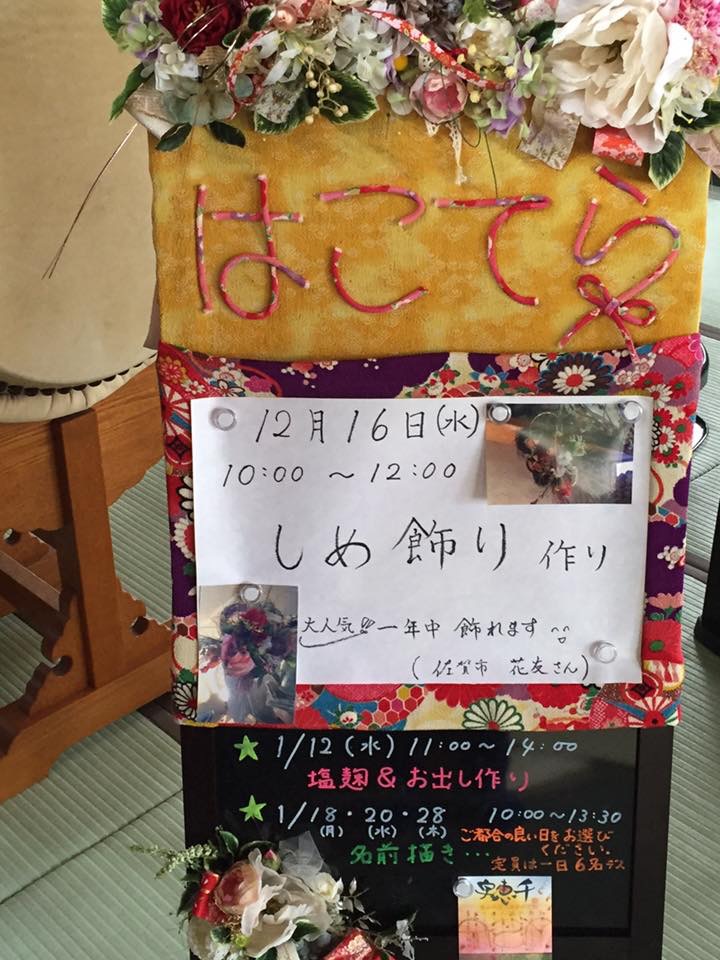 はこてら
12月16日(水)
10:00 ～ 12:00
しめ飾り 作り
大人気!! 一年中 飾れます
(佐賀市 花友さん)
★ 1/12(水) 11:00～14:00
塩麹&お出し作り
★ 1/18・20・28 10:00～13:30
(月) (水) (木) ご都合の良い日をお選び
ください。
名前描き・・・ 定員は一日6名デス